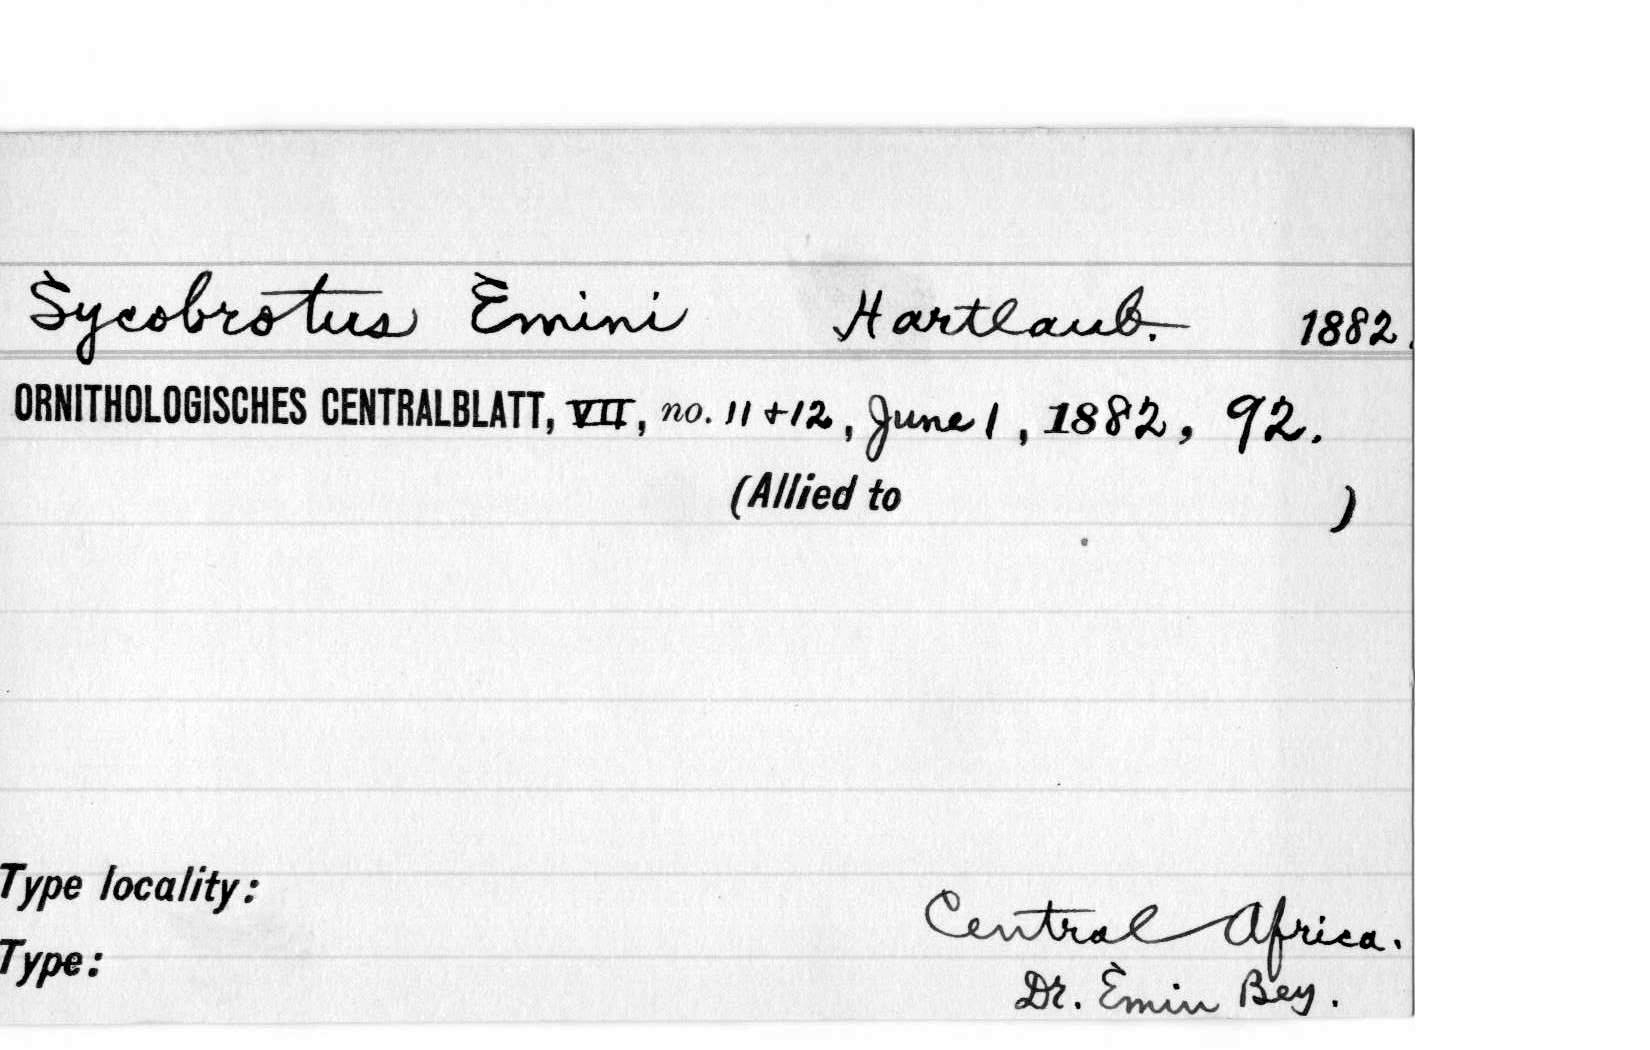 Sycobrotus Emini Hartlaub. 1882.
ORNITHOLOGISCHES CENTRALBLATT, VII, no. 11 + 12, June 1, 1882, 92.
(Allied to )
Type locality:
Central Africa.
Type:
Dr. Emin Bey.